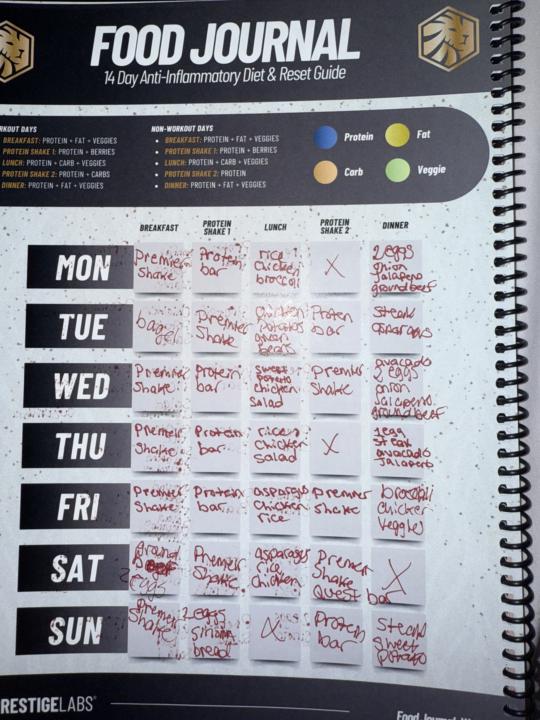 FOOD JOURNAL
14 Day Anti-Inflammatory Diet & Reset Guide
RKOUT DAYS
BREAKFAST: PROTEIN + FAT + VEGGIES
PROTEIN SHAKE 1: PROTEIN + BERRIES
LUNCH: PROTEIN + CARB + VEGGIES
PROTEIN SHAKE 2: PROTEIN + CARBS
DINNER: PROTEIN + FAT + VEGGIES
NON-WORKOUT DAYS
• BREAKFAST: PROTEIN + FAT + VEGGIES
• PROTEIN SHAKE 1: PROTEIN + BERRIES
• LUNCH: PROTEIN + CARB + VEGGIES
• PROTEIN SHAKE 2: PROTEIN
• DINNER: PROTEIN + FAT + VEGGIES
Protein
Fat
Carb
Veggie
BREAKFAST
PROTEIN
SHAKE 1
LUNCH
PROTEIN
SHAKE 2
DINNER
MON
Premier
Shake
Protein
bar
rice
chicken
broccoli
X
2 eggs
onion
Jalapeno
ground beef
TUE
bagel
Premier
Shake
chicken
potatos
green
beans
Protein
bar
Steak
asparagus
WED
Premier
Shake
Protein
bar
sweet
potato
chicken
Salad
Premier
Shake
avacado
2 eggs
onion
Jalapeno
ground beef
THU
Premier
Shake
Protein
bar
rice
Chicken
Salad
X
1 egg
steak
avocado
Jalapeno
FRI
Premier
Shake
Protein
bar
asparagus
Chicken
rice
Premier
Shake
broccoli
chicken
veggies
SAT
Ground
Beef
2 eggs
Premier
Shake
Asparagus
rice
Chicken
Premier
Shake
Quest bar
X
SUN
Premier
Shake
2 eggs
sirloin
bread
X
Protein
bar
Steak
sweet
potato
RESTIGELABS®
Food Journal